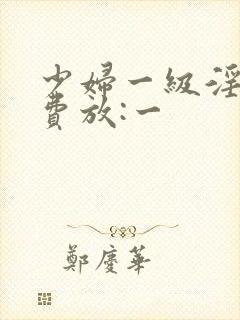 少婦一級淫
費放:一
鄭慶華